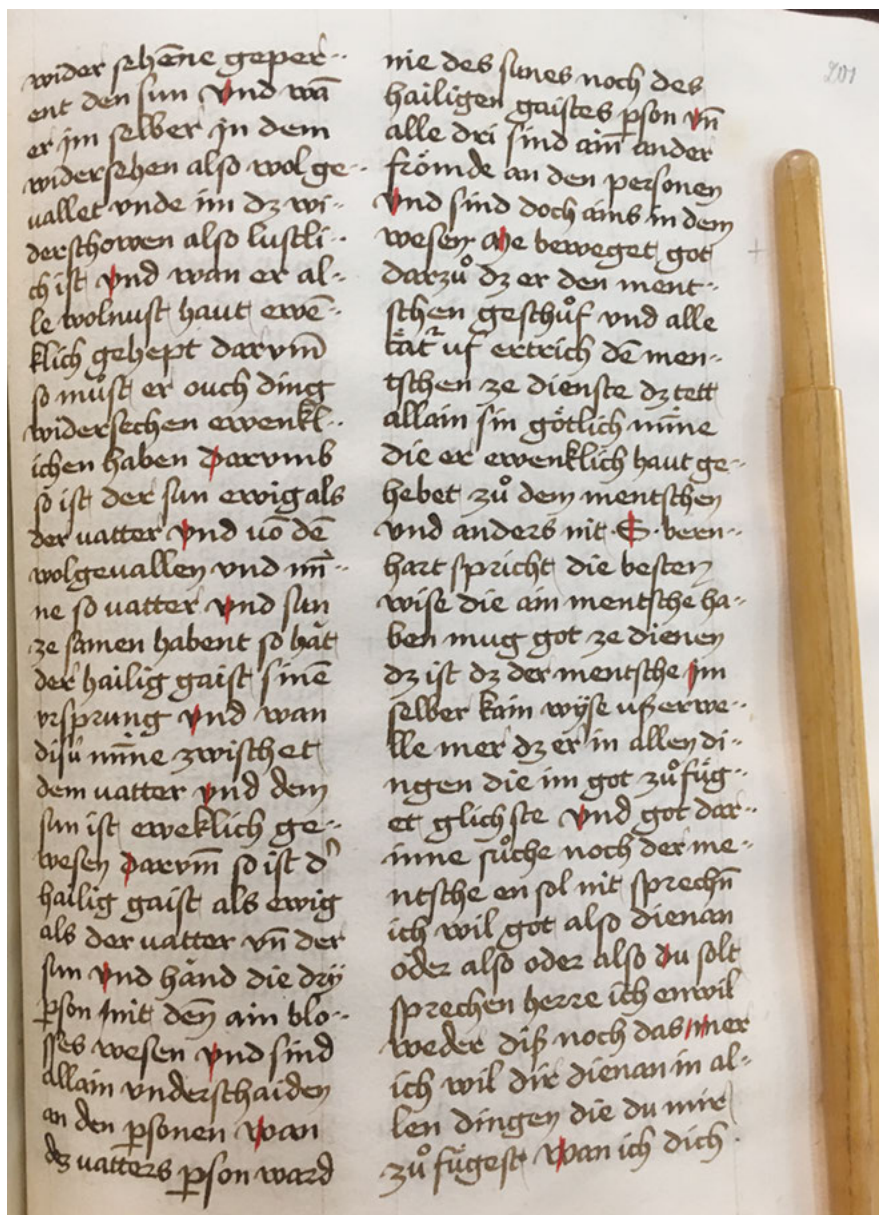 wider sehēne geper··
ent den sun vnd wā
er jm selber jn dem
widersehen also wol ge··
uallet vnde im dz wi··
derschowen also lustli··
ch ist vnd wan er al··
le wolnust haut ewē··
klich gehept darvm̄
so můst er ouch ding
widersechen ewenkl··
ichen haben Darvmb
so ist der sun ewig als
der uatter vnd uō dē
wolgeuallen vnd mī··
ne so uatter vnd sun
ze samen habent so hät
der hailig gaist sinē
vrsprung vnd wan
disü mīne zwischet
dem uatter vnd dem
sun ist eweklich ge··
wesen Darvm̄ so ist d'
hailig gaist als ewig
als der uatter vn̄ der
sun vnd händ die drÿ
ꝑson mit den̄ ain blo··
sses wesen vnd sind
allain vnderschaiden
an den ꝑsonen Wan
dz uatters ꝑson ward
nie des sunes noch des
hailigen gaistes ꝑson vn̄
alle dri sind ain̄ ander
frömde an den personen
Vnd sind doch ains in dem
wesen aye beweget got
darzů dz er den ment··
schen geschůf vnd alle
tät͛ uf ertrich dē men··
tschen ze dienste dz tett
allain sin götlich mīne
die er ewenklich haut ge··
hebet zů dem mentschen
vnd anders nit · S · bern··
hart spricht die besten
wise die ain mentsche ha··
ben mug got ze dienen
dz ist dz der mentsche jm
selber kain wÿse ußerwe··
lle mer dz er in allen di··
ngen die im got zů füg··
et glich ste Vnd got dar··
inne sůche noch der me··
ntsche en sol nit sprechn̄
ich wil got also dienan
oder also oder also du solt
sprechen herre ich enwil
weder diß noch das mer
ich wil dir dienan in al··
len dingen die du mir
zů fügest Wan ich dich
201